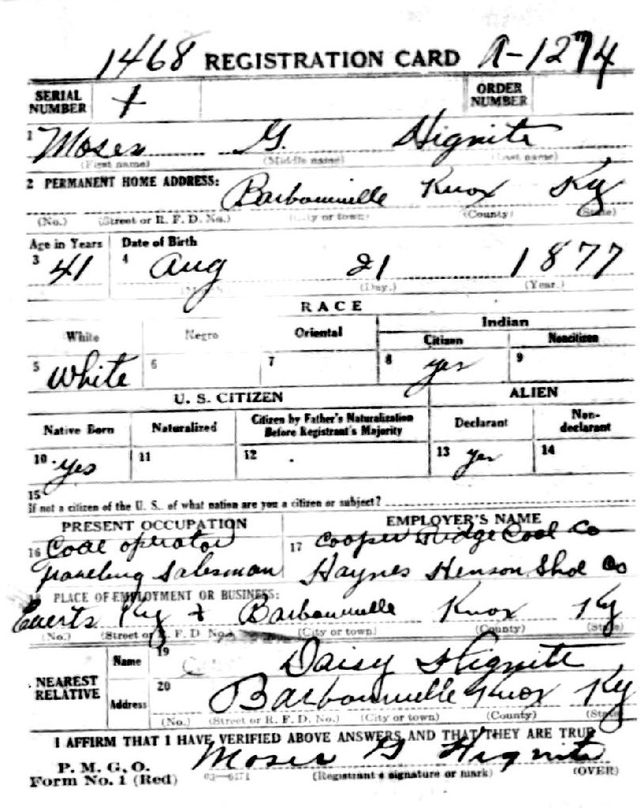 1468 REGISTRATION CARD A-1274
SERIAL NUMBER + ORDER NUMBER
1 Moses G. Hignite
(First name) (Middle name) (Last name)
2 PERMANENT HOME ADDRESS: Barbourville Knox Ky
(No.) (Street or R. F. D. No.) (City or town) (County) (State)
Age in Years Date of Birth
3 41 4 Aug 21 1877
(Day.) (Year.)
RACE
White Negro Oriental Indian
Citizen Noncitizen
5 White 6 7 8 yes 9
U. S. CITIZEN ALIEN
Native Born Naturalized Citizen by Father's Naturalization Before Registrant's Majority Declarant Non-declarant
10 yes 11 12 13 yes 14
15
If not a citizen of the U. S., of what nation are you a citizen or subject?
PRESENT OCCUPATION EMPLOYER'S NAME
16 Coal operator 17 Cooper Ridge Coal Co
Traveling Salesman Haynes Henson Shoe Co
18 PLACE OF EMPLOYMENT OR BUSINESS:
Everts Ky + Barbourville Knox Ky
(No.) (Street or R. F. D. No.) (City or town) (County) (State)
NEAREST RELATIVE Name 19 Daisy Hignite
Address 20 Barbourville Knox Ky
(No.) (Street or R. F. D. No.) (City or town) (County) (State)
I AFFIRM THAT I HAVE VERIFIED ABOVE ANSWERS AND THAT THEY ARE TRUE
P. M. G. O. Moses G Hignite
Form No. 1 (Red) 03-6171 (Registrant's signature or mark) (OVER)